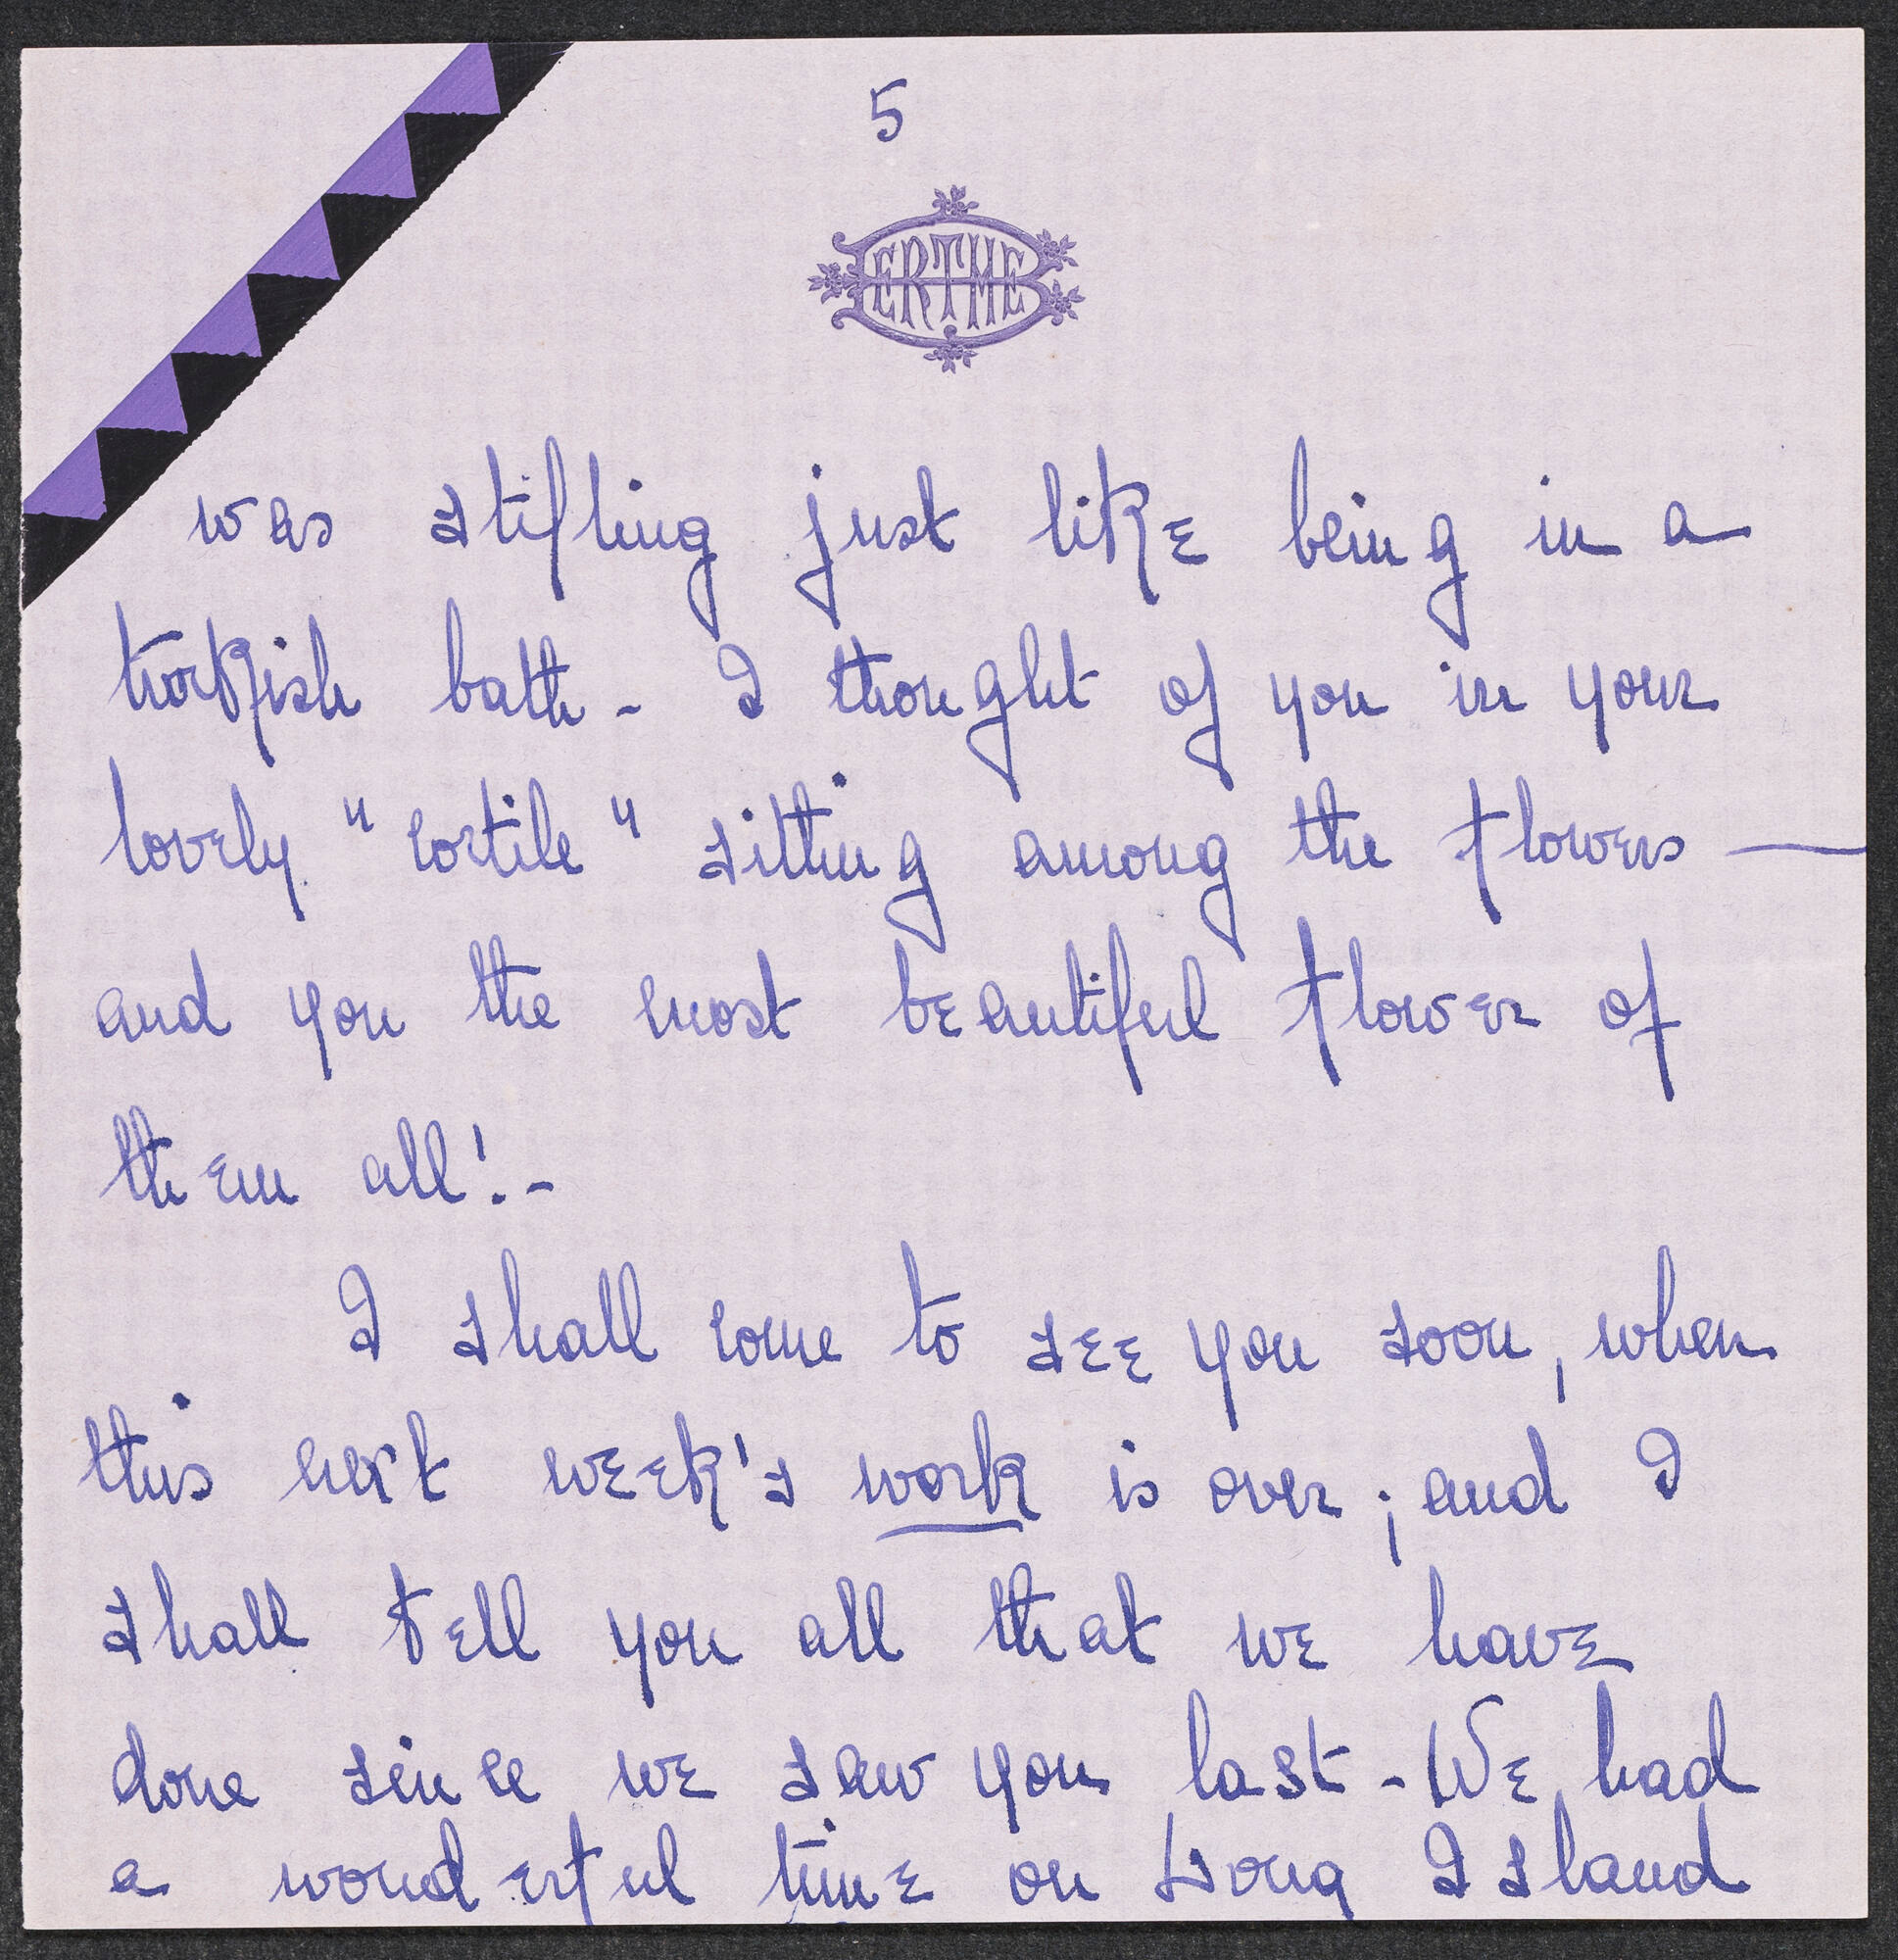 5
BERTHE
was stifling just like being in a
torkish bath - I thought of you in your
lovely "cortile" sitting among the flowers —
and you the most beautiful flower of
them all! -
I shall come to see you soon, when
this next week's work is over; and I
shall tell you all that we have
done since we saw you last - We had
a wonderful time on Long Island